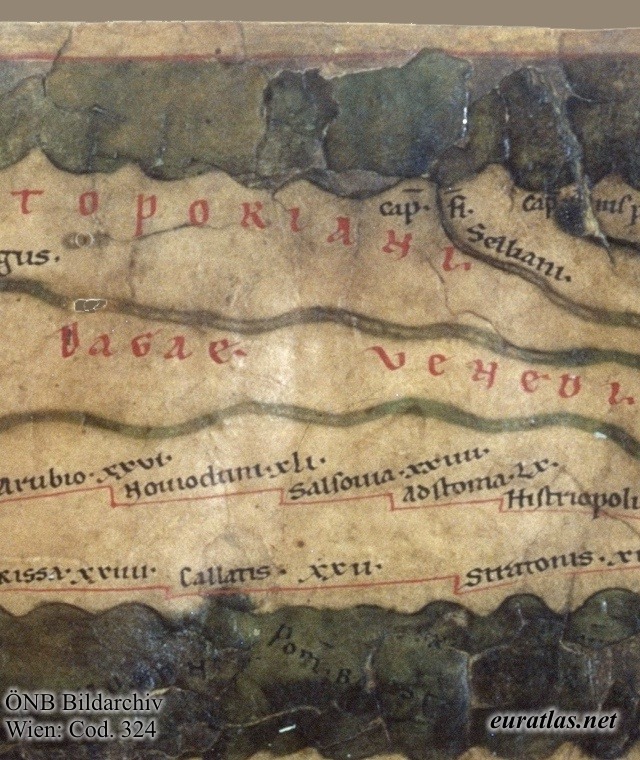 TOPORIANI
cap. fl. Selliani.
gus.
Dagae.
Venedi
Arubio. xxvi. Nouiodum. xli. Salsouia. xxiiii. Ad stoma. Lx. Histriopoli
rissa. xxiiii. Callatis. xxii. Stratonis. xi
ÖNB Bildarchiv
Wien: Cod. 324
euratlas.net